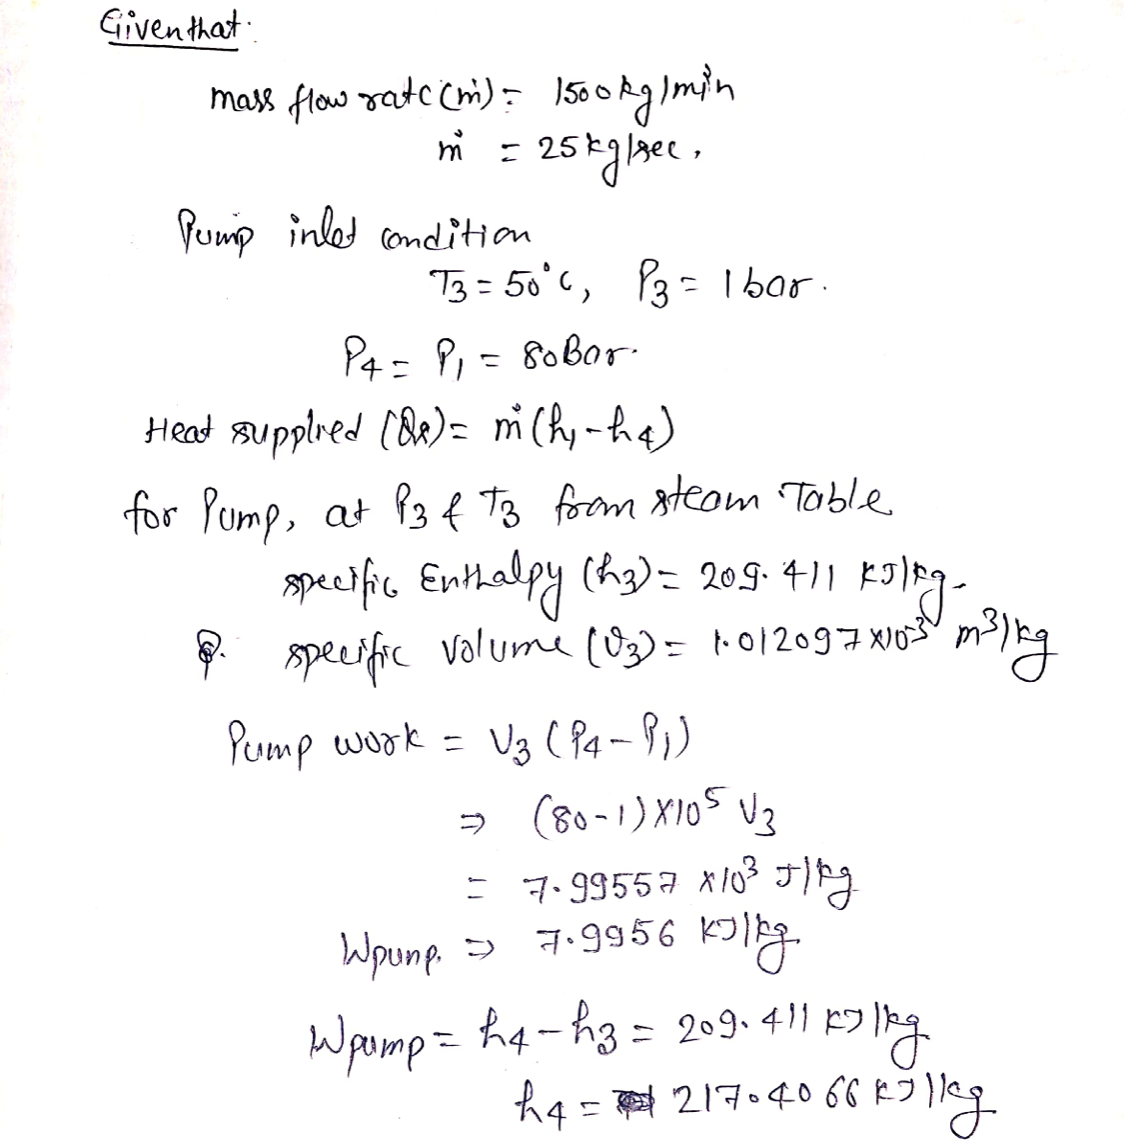 Given that:
mass flow rate (ṁ) = 1500 kg/min
ṁ = 25 kg/sec,
Pump inlet condition
T3 = 50°C, P3 = 1 bar.
P4 = P1 = 80 Bar.
Heat supplied (Qs) = ṁ (h1 - h4)
for Pump, at P3 & T3 from steam Table
specific Enthalpy (h3) = 209.411 KJ/kg.
specific volume (v3) = 1.012097 x10^-3 m^3/kg
Pump work = V3 (P4 - P1)
⇒ (80-1) x10^5 V3
= 7.99557 x10^3 J/kg
Wpump. ⇒ 7.9956 KJ/kg.
Wpump = h4 - h3 = 209.411 KJ/kg
h4 = 217.4066 KJ/kg